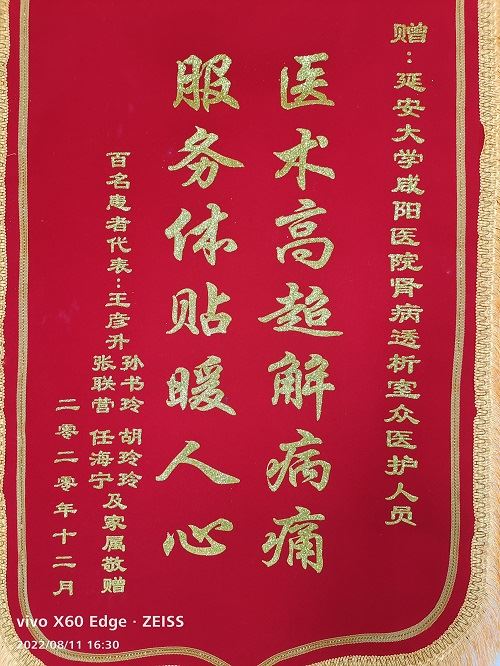 赠：延安大学咸阳医院肾病透析室众医护人员
医术高超解病痛
服务体贴暖人心
百名患者代表：王彦升 孙书玲 胡玲玲
张联营 任海宁 及家属敬赠
二零二零年十二月
vivo X60 Edge · ZEISS
2022/08/11 16:30